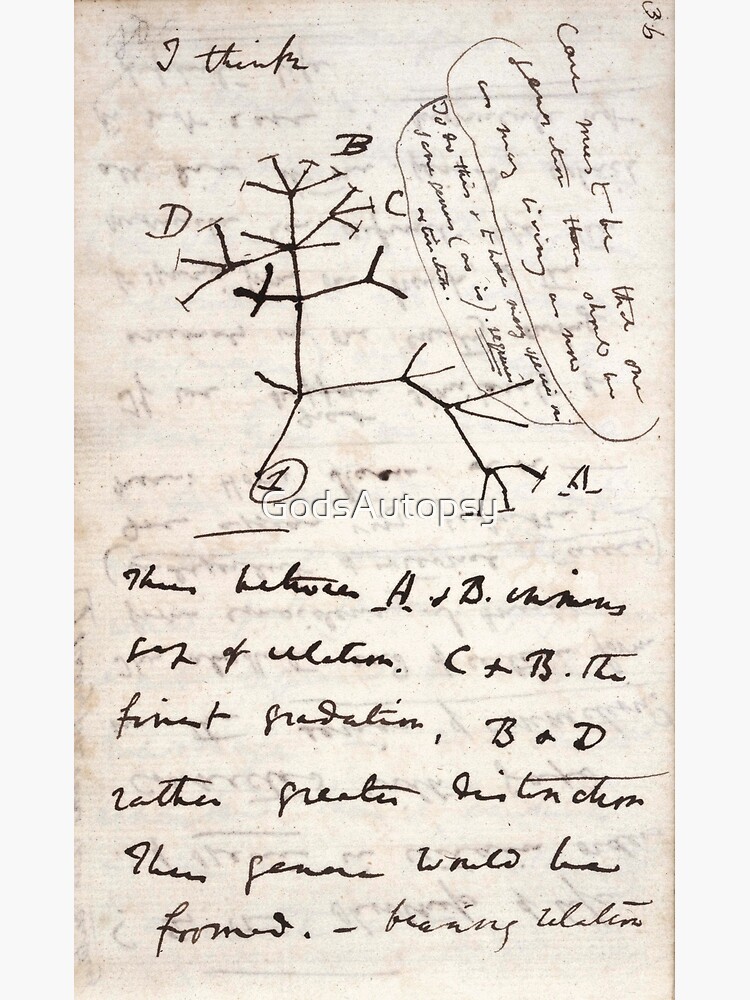 36
I think
Case must be that one
generation then should be
as many living as now
To do this & to have many species in
same genus (as is). requires
extinction.
B
C
D
A
1
GodsAutopsy
Thus between A & B. immense
gap of relation. C & B. the
finest gradation, B & D
rather greater distinction
Thus genera would be
formed. — bearing relation